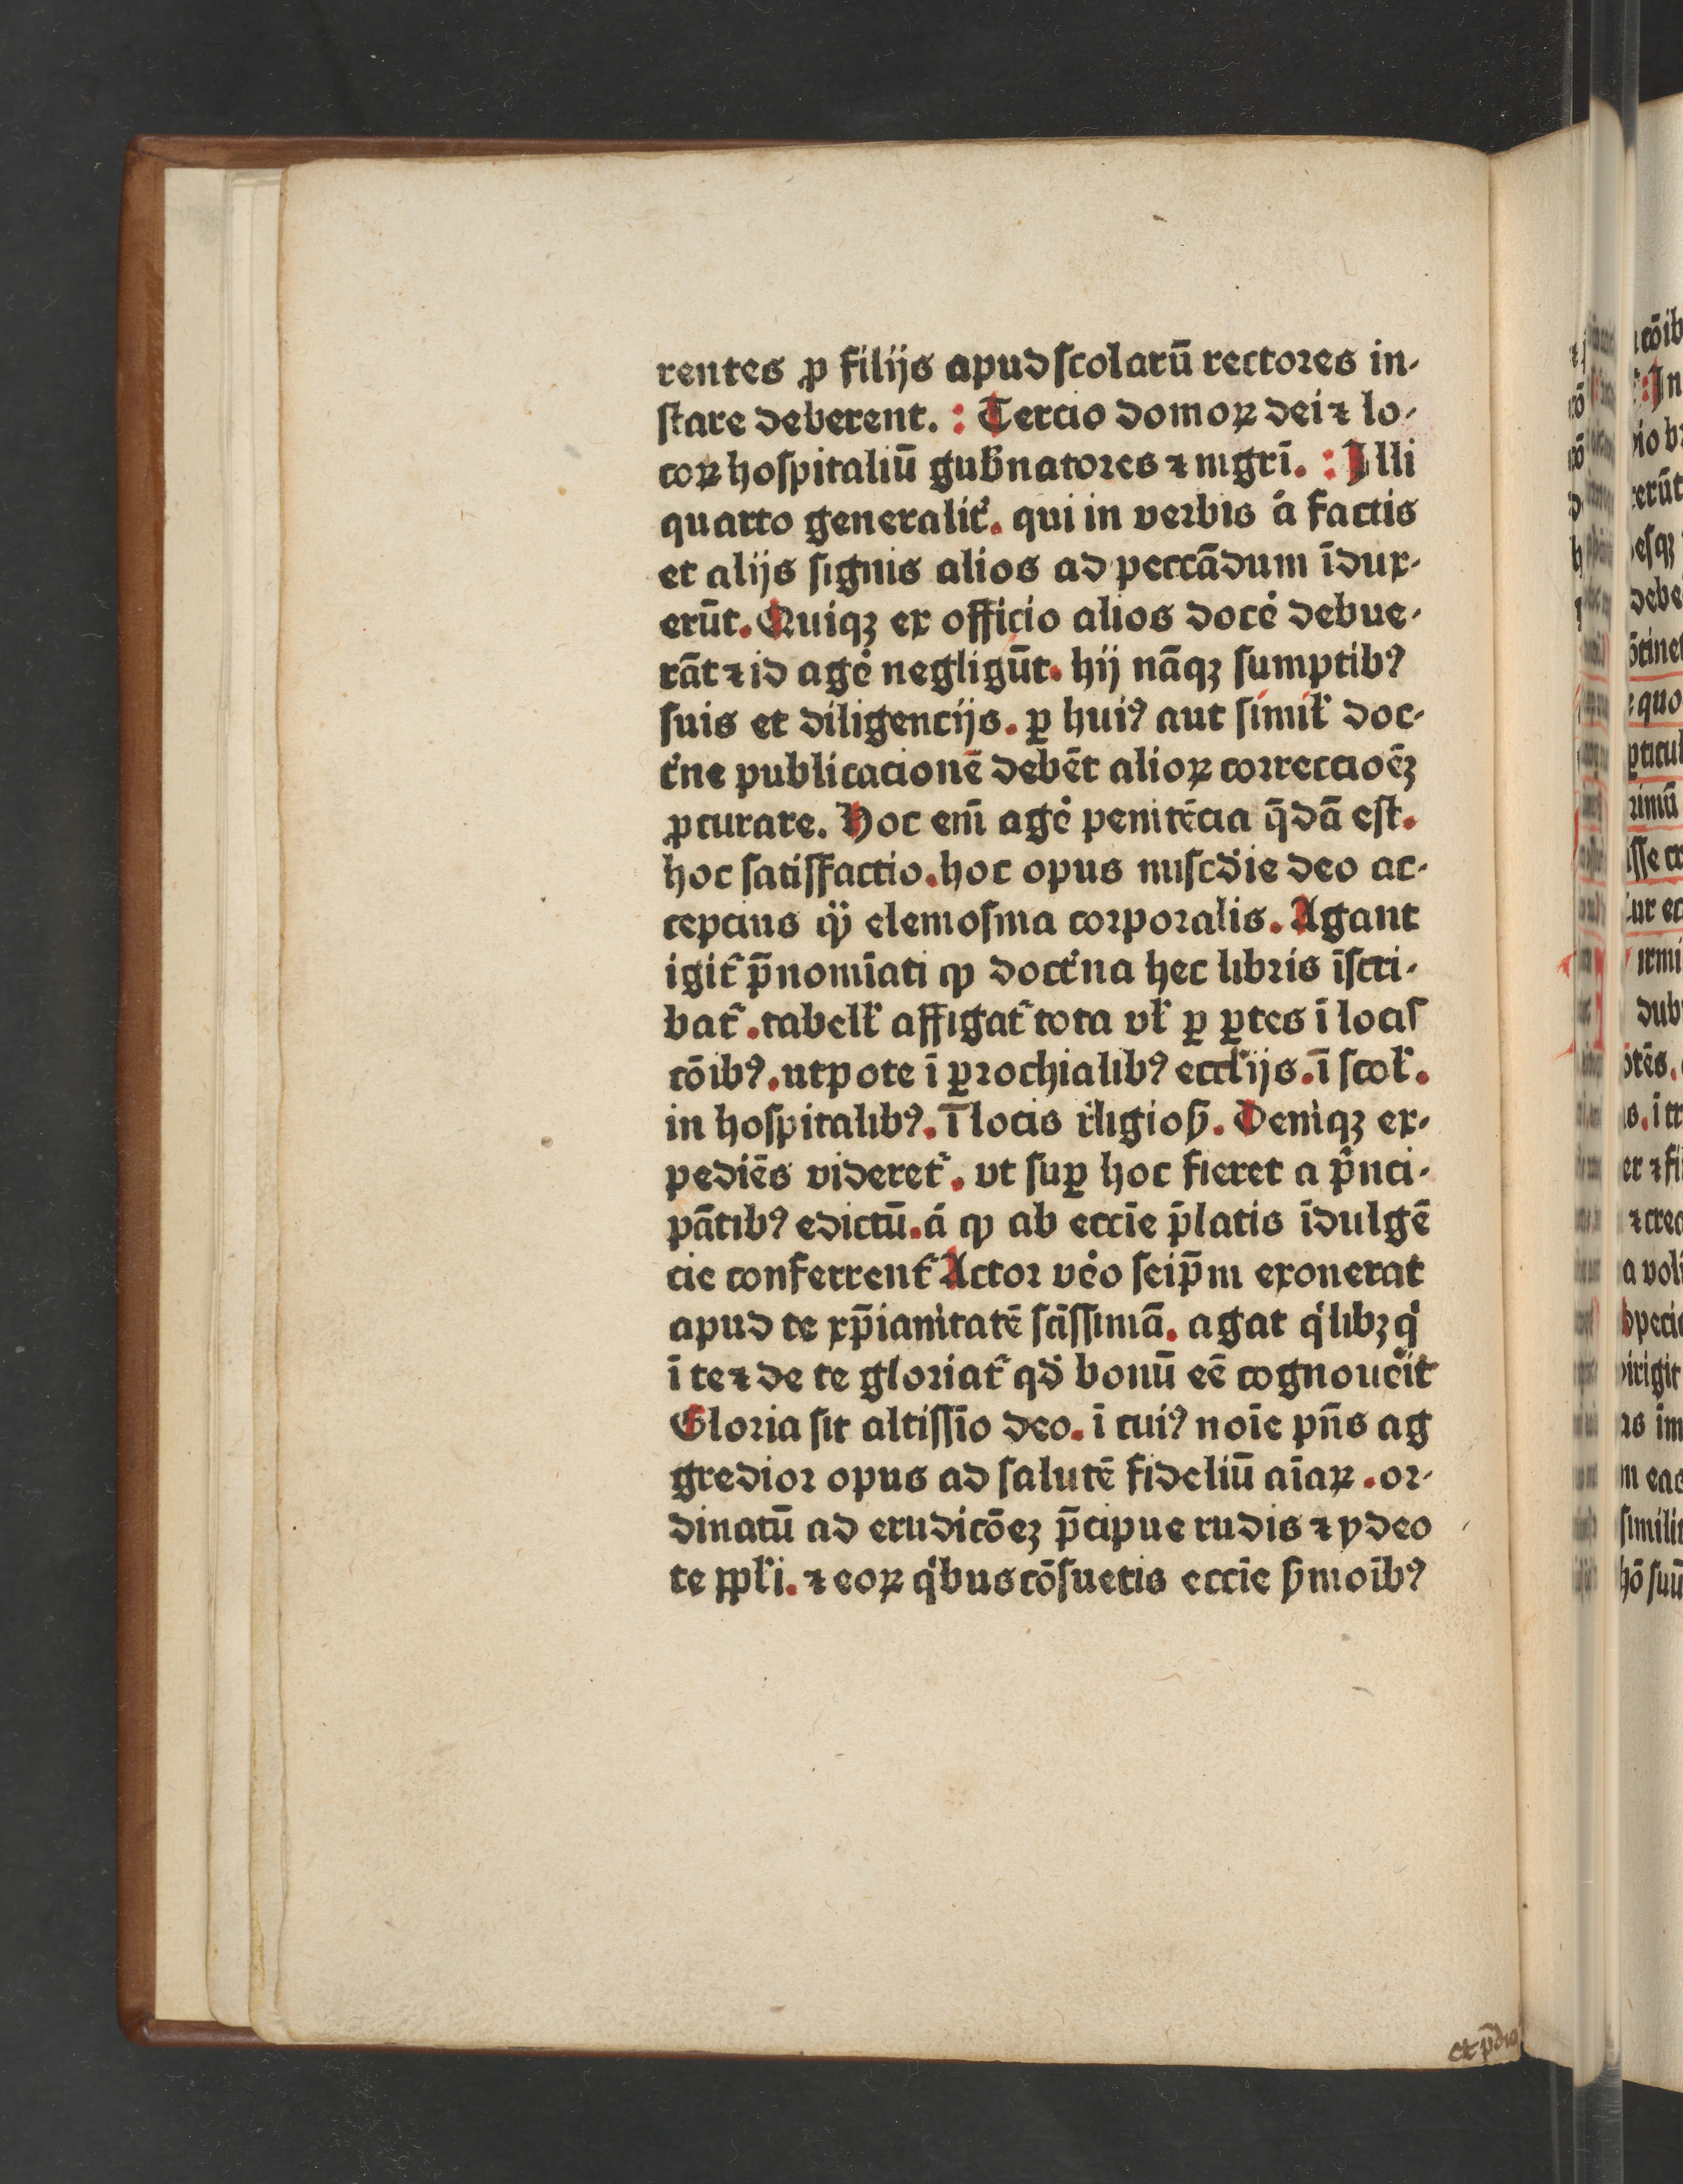 rentes ꝓ filijs apud ſcolarū rectores in-
ſtare deberent. : Tercio domoꝝ dei ⁊ lo-
coꝝ hoſpitaliū gub̄natores ⁊ mgrī. : Illi
quarto generalit̓. qui in verbis a̓ factis
et alijs ſignis alios ad peccādum īdux-
erūt. Quiqꝫ ex officio alios doce̓ debue-
rāt ⁊ id age̓ negligūt. hij nāqꝫ ſumptibꝰ
ſuis et diligencijs. ꝑ huiꝰ aut ſimil̓ doc-
t̓ne publicacionē debēt alioꝝ correccioēꝫ
ꝓcurare. Hoc em̄ age̓ penitēcia q̄dā eſt.
hoc ſatiſfactio. hoc opus miſcd̓ie deo ac-
cepcius qͣ̄ elemoſina corporalis. Agant
igit̓ p̄nomīati ꝙ doct̓na hec libris īſcri-
bat̓. tabell̓ affigat̓ tota vl̓ ꝑ ꝑtes ī locis
cōibꝰ. utpote ī ꝑrochialibꝰ eccl̓ijs. ī ſcol̓.
in hoſpitalibꝰ. ī locis r̓ligioſ̓. Deniqꝫ ex-
pediēs videret̓. vt ſuꝑ hoc fieret a pͥnci-
pātibꝰ edictū. a̓ ꝙ ab eccīe p̄latis īdulgē
cie conferrent̓ Actor ve̓o ſeip̄m exonerat
apud te xp̄ianitatē ſcīſſimā. agat qͥlibꝫ qͥ
ī te ⁊ de te gloriat̓ qd̓ bonū eē cognoue̓it
Gloria ſit altiſſīo deo. ī cuiꝰ noīe pn̄s ag
gredior opus ad ſalutē fideliū aīaꝝ. or-
dinatū ad erudicōeꝫ p̄cipue rudis ⁊ ydeo
te ppl̓i. ⁊ eoꝝ qͥbus cōſuetis eccīe ẜmoībꝰ